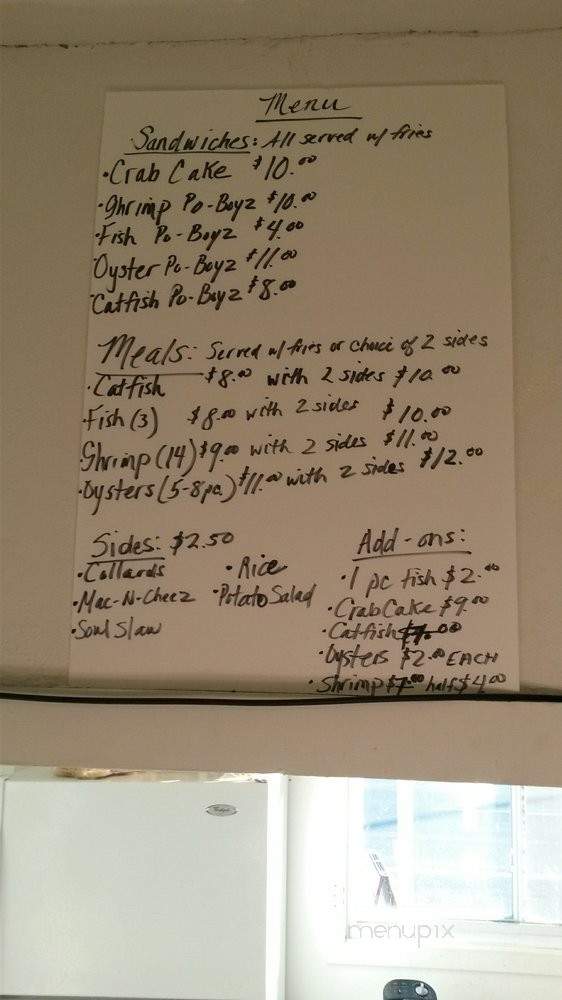 Menu
Sandwiches: All served w/ fries
• Crab Cake $10.00
• Shrimp Po-Boyz $10.00
• Fish Po-Boyz $4.00
Oyster Po-Boyz $11.00
Catfish Po-Boyz $8.00
Meals: Served w/ fries or choice of 2 sides
• Catfish $8.00 with 2 sides $10.00
Fish (3) $8.00 with 2 sides $10.00
Shrimp (14) $9.00 with 2 sides $11.00
• Oysters (5-8pc.) $11.00 with 2 sides $12.00
Sides: $2.50
• Collards
• Mac-N-Cheez
• Soul Slaw
• Rice
• Potato Salad
Add-ons:
• 1 pc fish $2.00
• Crab Cake $9.00
• Catfish
• Oysters $2.00 EACH
• Shrimp $7.00 half $4.00
menupix